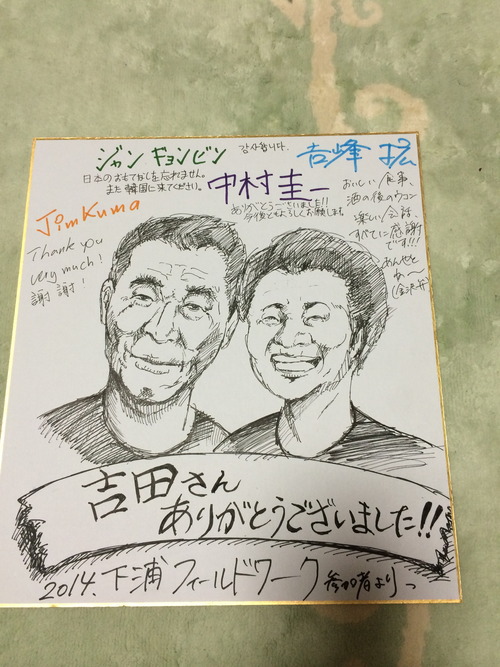 ジャン ギョンビン
감사합니다.
日本のおもてなしを忘れません。
また韓国に来てください。
吉峰 拡
中村圭一
ありがとうございました!!
今後ともよろしくお願いします。
Jimkuma
Thank you
very much!
謝謝!
おいしい食事、
酒の後のウコン
楽しい会話、
すべてに感謝
です!!!
あんやと
あ〜
吉田さん
ありがとうございました!!
2014. 下浦フィールドワーク 参加者より